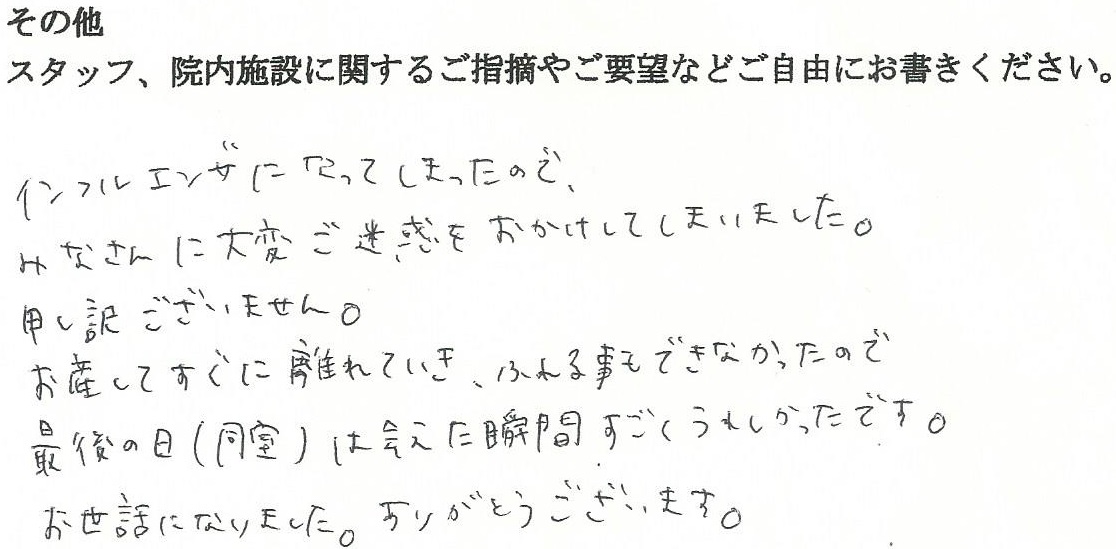 その他
スタッフ、院内施設に関するご指摘やご要望などご自由にお書きください。
インフルエンザになってしまったので、
みなさんに大変ご迷惑をおかけしてしまいました。
申し訳ございません。
お産してすぐに離れていき、ふれる事もできなかったので
最後の日(同室)は会えた瞬間すごくうれしかったです。
お世話になりました。ありがとうございます。